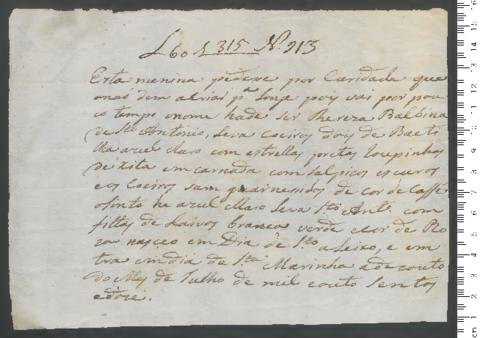 L60 f 315 Nº 913
Esta menina pedese por Caridade que
não dem a criar pª longe pois vai por pou
co tempo o nome hade ser Thereza Balbina
de Stº Antonio, leva coeiros dois de Baeti
lha azul claro com estrellas pretas Roupinhos
de xita emcarnada com salpicos escuros
e os Coeiros sam guarnesidos de cor de Caffe
o sinto he azul claro leva Stº Antº com
fittas de Raivos branca verde e cor de Ro
za nasceo em Dia de Stº Aleixo, e em
tra em dia de Stª Marinha a dezouto
do Mes de Julho de mil e outo sentos
e doze.
cm